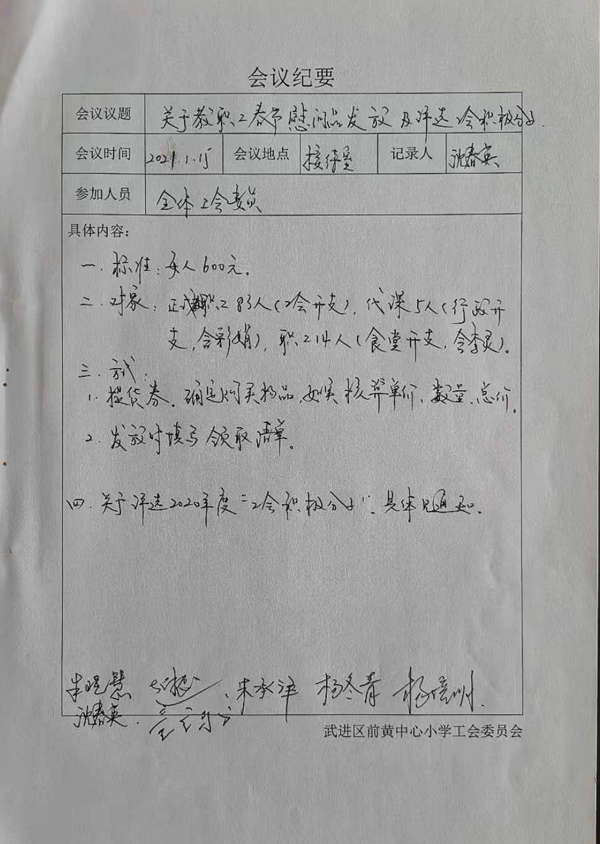 会议纪要
会议议题 关于教职工春节慰问品发放及评选工会积极分子.
会议时间 2021.1.15 会议地点 接待室 记录人 沈春英
参加人员 全体工会委员
具体内容：
一. 标准：每人600元.
二. 对象：正式教职工83人(工会开支), 代课5人(行政开
支, 含彩娟), 职工14人(食堂开支, 含李灵).
三. 方式:
1. 提货券. 确定购买物品, 如实核算单价、数量、总价.
2. 发放时填写领取清单.
四. 关于评选2020年度"工会积极分子". 具体见通知.
朱晓慧 朱永洋 杨冬青 杨培刚
沈春英.
武进区前黄中心小学工会委员会